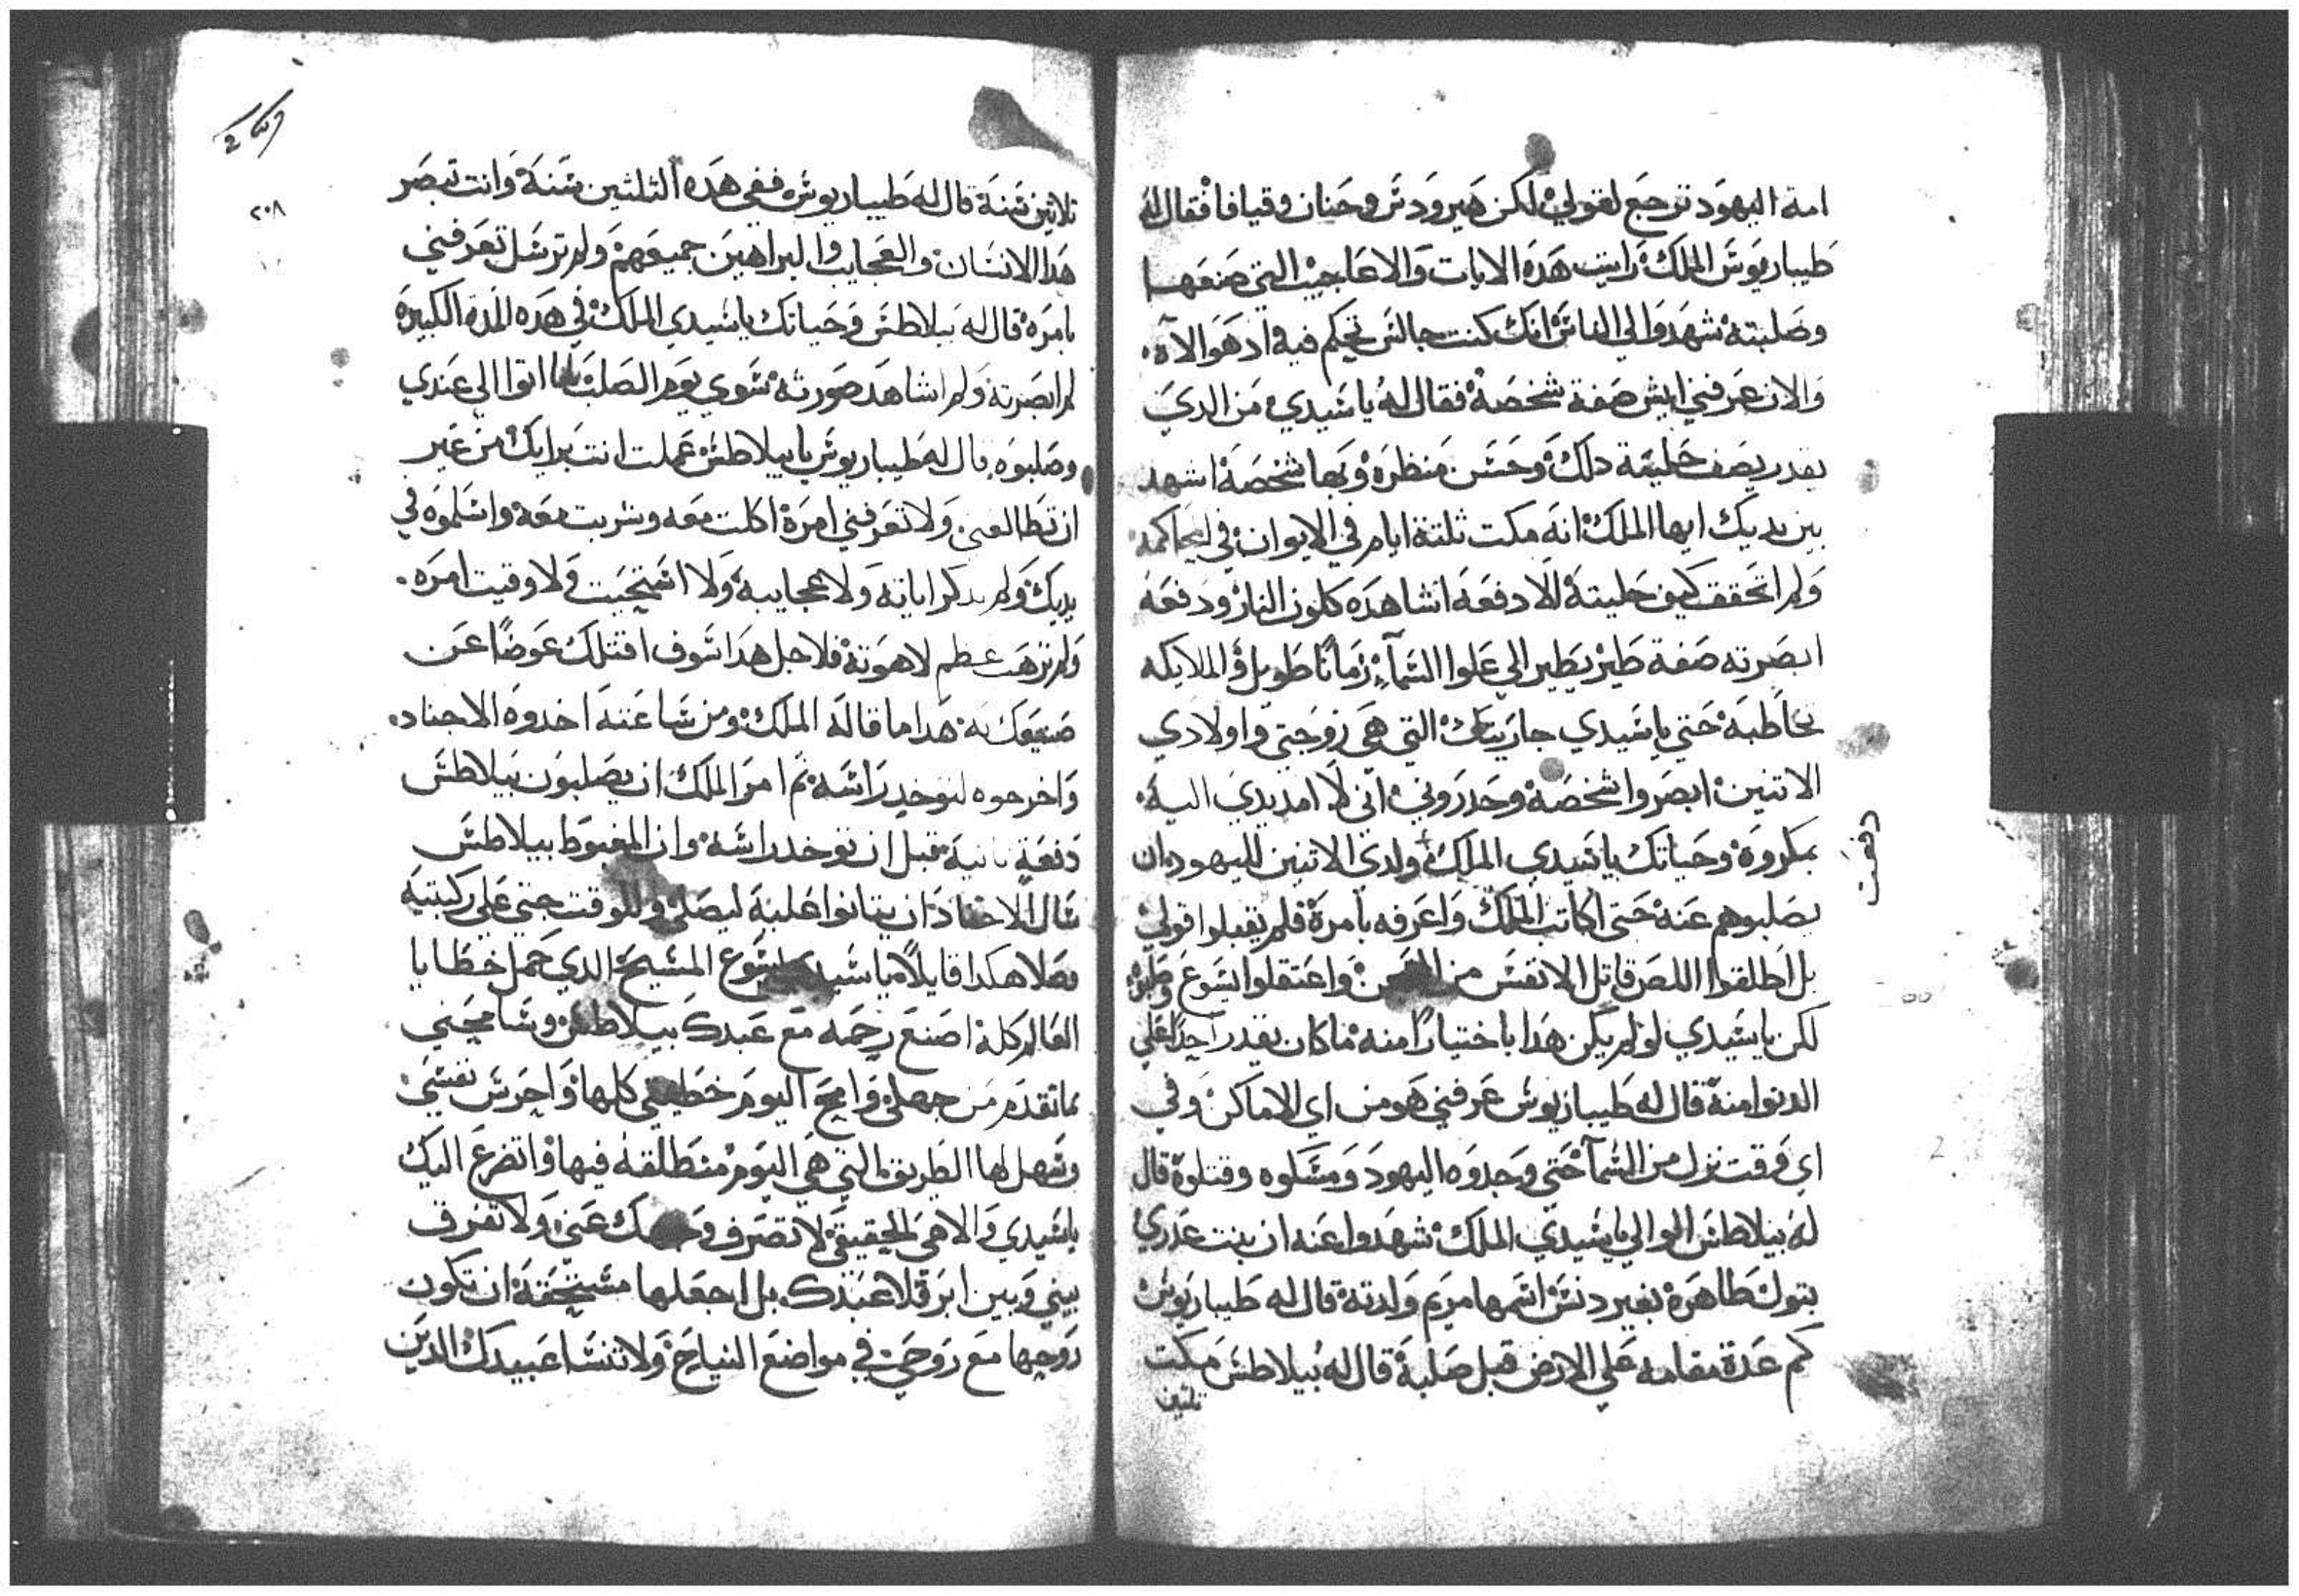 امة اليهود ترجع لقولي لكن هيرودس وحنان وقيافا فقال له
طيباريوس الملك رايت هده الايات والاعاجيب التي صنعها
وصلبته شهدوا لي الناس انك كنت جالس تحكم فيه اد هو الاه.
والان عرفني ايش صفة شخصة فقال له ياسيدي من الدي
يقدر يصف حليقة دلك وحسن منظره وبها شخصة اشهد
بين يديك ايها الملك انه مكت ثلتة ايام في الايوان في المحاكمة
ولم اتحقق كيف حليتة الا دفعة اشاهده كلون النار ودفعة
ابصرته صفة طير يطير الي علوا السمآء زمانا طويل والملايكه
تخاطبة حتي ياسيدي جاريتك التي هي زوجتي واولادي
الاتنين ابصروا شخصة وحدروني اني لا امد يدي الية.
بمكروة وحياتك ياسيدي الملك ولدي الاتنين لليهود ان
يصلبوهم عنه حتي اكاتب الملك واعرفه بامرة فلم يقبلوا قولي
بل اطلقوا اللص قاتل الانفس من واعتقلوا يسوع
لكن ياسيدي لو لم يكن هدا باختيارا منه ما كان يقدر احدا علي
الدنوا منة قال له طيباريوس عرفني هو من اي الاماكن وفي
اي وقت نزل من السمآ حتي وجدوه اليهود ومسكوه وقتلوة قال
له بيلاطس الوالي ياسيدي الملك شهدوا عنه ان بنت عدري
بتول طاهرة بغير دنس اسمها مريم ولدتة قال له طيباريوس
كم عدة مقامه علي الارض قبل صلبة قال له بيلاطس مكت
تلتين
دفعت
٢٠٨
تلاتين سنة قال له طيباريوس ففي هده التلتين سنة وانت تبصر
هدا الانسان والعجايب والبراهين جميعهم ولم ترسل تعرفني
بامرة قال له بيلاطس وحياتك ياسيدي الملك في هده المدة الكبيرة
لم ابصرته ولم اشاهد صورته سوي يوم الصلب لما اتوا الي عندي
وصلبوه قال له طيباريوس يا بيلاطس عملت انت برايك من غير
ان تطالعني ولا تعرفني امرة اكلت معه وشربت معة واسلموه في
يديك ولم تدكر اياته ولا عجايبة ولا استحيت ولا وقيت امره.
ولم ترهب عظم لاهوتة فلاجل هدا سوف اقتلك عوضا عن
صنيعك به هدا ما قاله الملك ومن ساعته اخدوه الاجناد.
واخرجوه ليوخد راسه تم امر الملك ان يصلبون بيلاطس
دفعة تانية قبل ان توخد راسه وان المغبوط بيلاطس
سال الاجناد ان يتانوا علية ليصلي وللوقت جتي علي ركبتيه
وصلا هكدا قايلا ياسيدي يسوع المسيح الدي حمل خطايا
العالم كلة اصنع رحمه مع عبدك بيلاطس وسامحني
بما تقدم من جهلي وامح اليوم خطيتي كلها واحرس نفسي
وسهل لها الطريق التي هي اليوم منطلقة فيها واتضرع اليك
ياسيدي والاهي الحقيقي لا تصرف وجهك عني ولا تفرق
بيني وبين ابرقلا عبدتك بل اجعلها مستحقة ان تكون
روحها مع روحي في مواضع النياح ولا تنسا عبيدك الدين